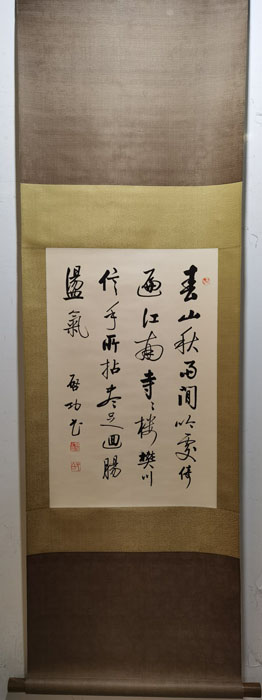 春山秋雨閒吟處倚
遍江南寺寺樓樊川
信手所拈盡是迴腸
盪氣
啟功書